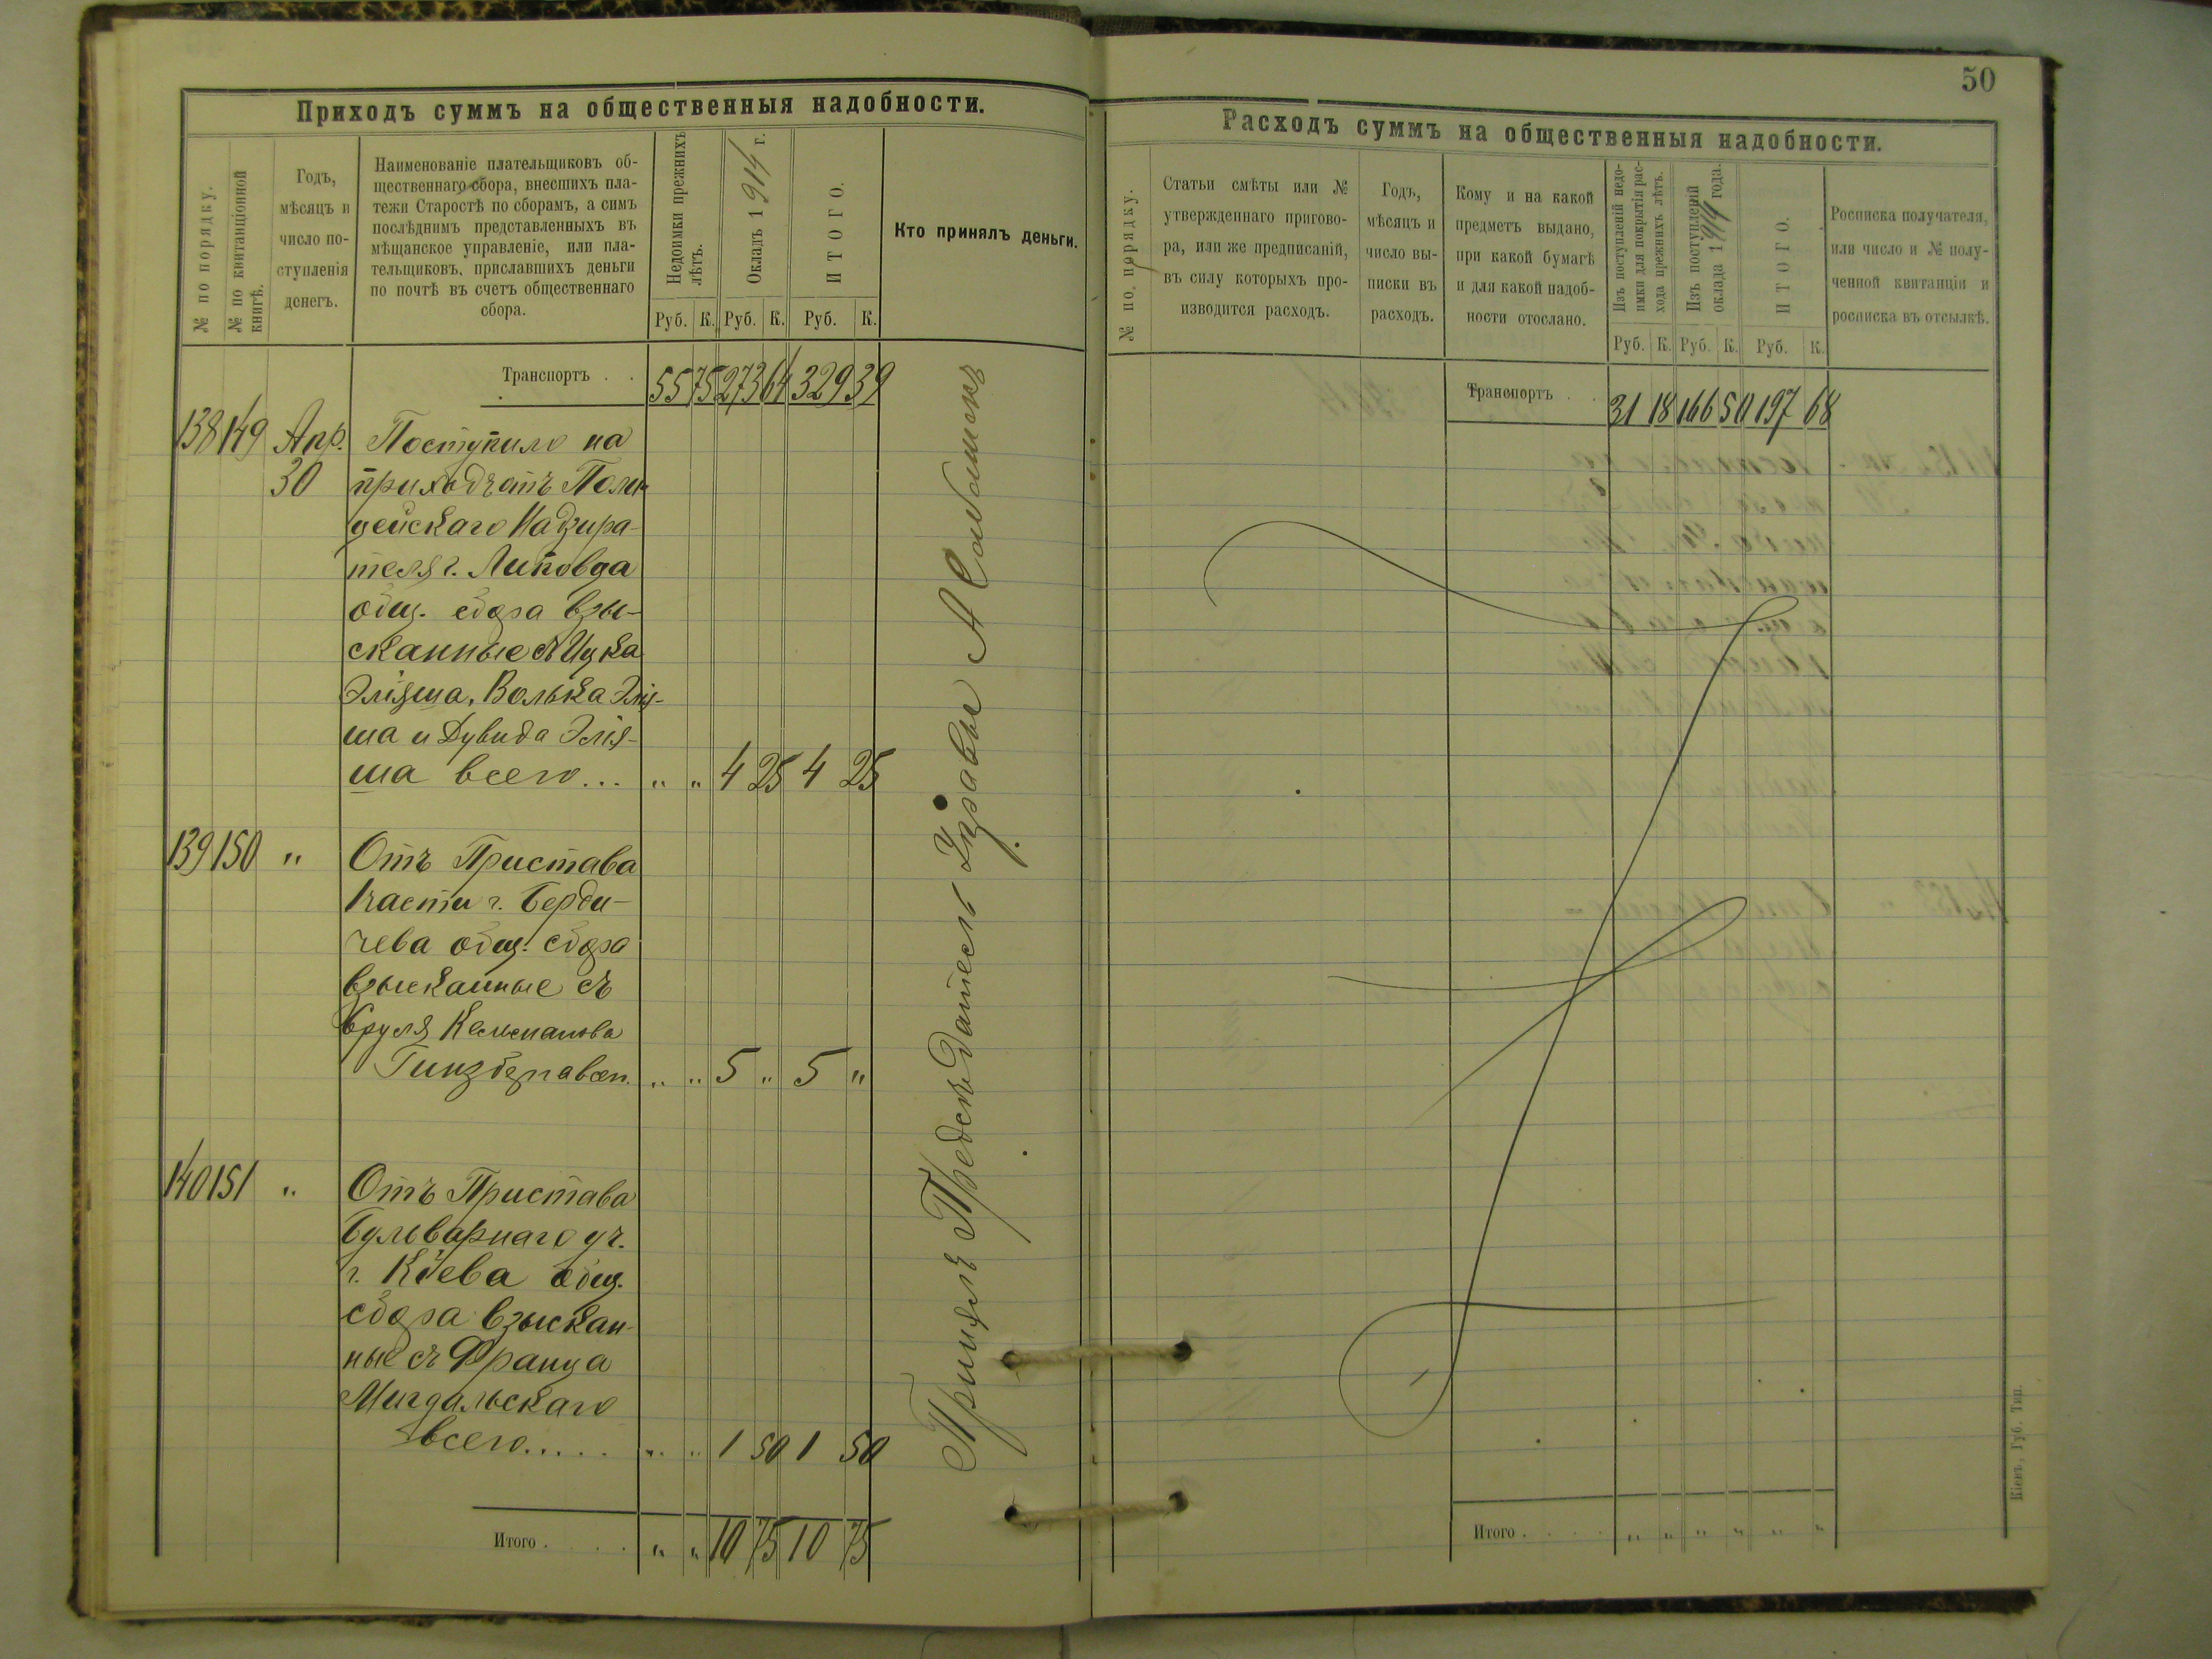 50
Приходъ суммъ на общественныя надобности.
№ по порядку.
№ по квитанціонной
книгѣ.
Годъ,
мѣсяцъ и
число по-
ступленія
денегъ.
Наименованіе плательщиковъ об-
щественнаго сбора, внесшихъ пла-
тежи Старостѣ по сборамъ, а симъ
послѣднимъ представленныхъ въ
мѣщанское управленіе, или пла-
тельщиковъ, приславшихъ деньги
по почтѣ въ счетъ общественнаго
сбора.
Недоимки прежнихъ
лѣтъ.
Окладъ 1914 г.
ИТОГО.
Кто принялъ деньги.
Руб. К. Руб. К. Руб. К.
Транспортъ . . 55 75 273 64 329 39
138 149 Апр. Поступило на
30 приходъ отъ Поли-
цейскаго Надзира-
теля г. Липовца
общ. сбора взы-
сканные съ Ицка
Эліяша, Волька Элія-
ша и Дувида Элія-
ша всего... " " 4 25 4 25
139 150 " Отъ Пристава
1 части г. Берди-
чева общ. сбора
взысканные съ
Сруля
" " 5 " 5 "
140 151 " Отъ Пристава
Бульварнаго уч.
г. Кіева общ.
сбора взыскан-
ные съ Франца
Мигдальскаго
всего..... " " 1 50 1 50
Итого . . . . " " 10 75 10 75
Принялъ Предсѣдатель Управы А
Расходъ суммъ на общественныя надобности.
№ по порядку.
Статьи смѣты или №
утвержденнаго пригово-
ра, или же предписаній,
въ силу которыхъ про-
изводится расходъ.
Годъ,
мѣсяцъ и
число вы-
писки въ
расходъ.
Кому и на какой
предметъ выдано,
при какой бумагѣ
и для какой надоб-
ности отослано.
Изъ поступленій недо-
имки для покрытія рас-
хода прежнихъ лѣтъ.
Изъ поступленій
оклада 1914 года.
ИТОГО.
Росписка получателя,
или число и № полу-
ченной квитанціи и
росписка въ отсылкѣ.
Руб. К. Руб. К. Руб. К.
Транспортъ . . 31 18 166 50 197 68
Итого . . . . " " " " " "
Кіевъ, Губ. Тип.